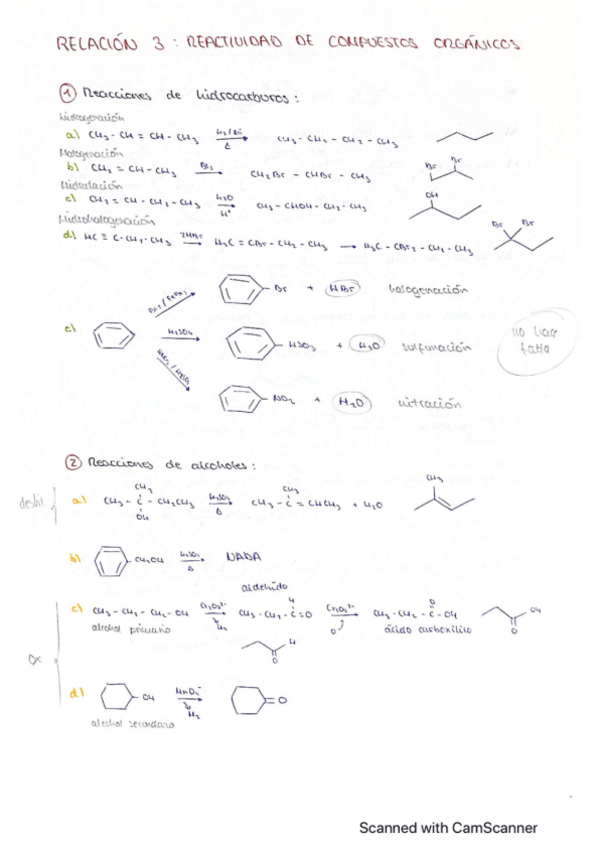 RELACIÓN 3 : REACTIVIDAD DE COMPUESTOS ORGÁNICOS
① Reacciones de hidrocarburos :
hidrogenación
a) CH3 - CH = CH - CH3 H2/Ni Δ CH3 - CH2 - CH2 - CH3
Halogenación
b) CH2 = CH - CH3 Br2 CH2Br - CHBr - CH3 Br Br
Hidratación
c) CH2 = CH - CH2 - CH3 H2O H+ CH3 - CHOH - CH2 - CH3 OH
Hidrohalogenación
d) HC ≡ C - CH2 - CH3 2HBr H2C = CBr - CH2 - CH3 → H3C - CBr2 - CH2 - CH3 Br Br
Br + HBr halogenación
e) H2SO4 HSO3 + H2O sulfonación no hace falta
NO2 + H2O nitración
② Reacciones de alcoholes :
deshi
CH3 CH3 CH3
a) CH3 - C - CH2CH3 H2SO4 Δ CH3 - C = CHCH3 + H2O
OH
b) CH2OH H2SO4 Δ NADA
aldehído
c) CH3 - CH2 - CH2 - OH Cr2O7 2- CH3 - CH2 - C = O H Cr2O7 2- CH3 - CH2 - C - OH O OH O
alcohol primario ácido carboxílico
H O
Ox
d) OH MnO4- H2 = O
alcohol secundario
Scanned with CamScanner